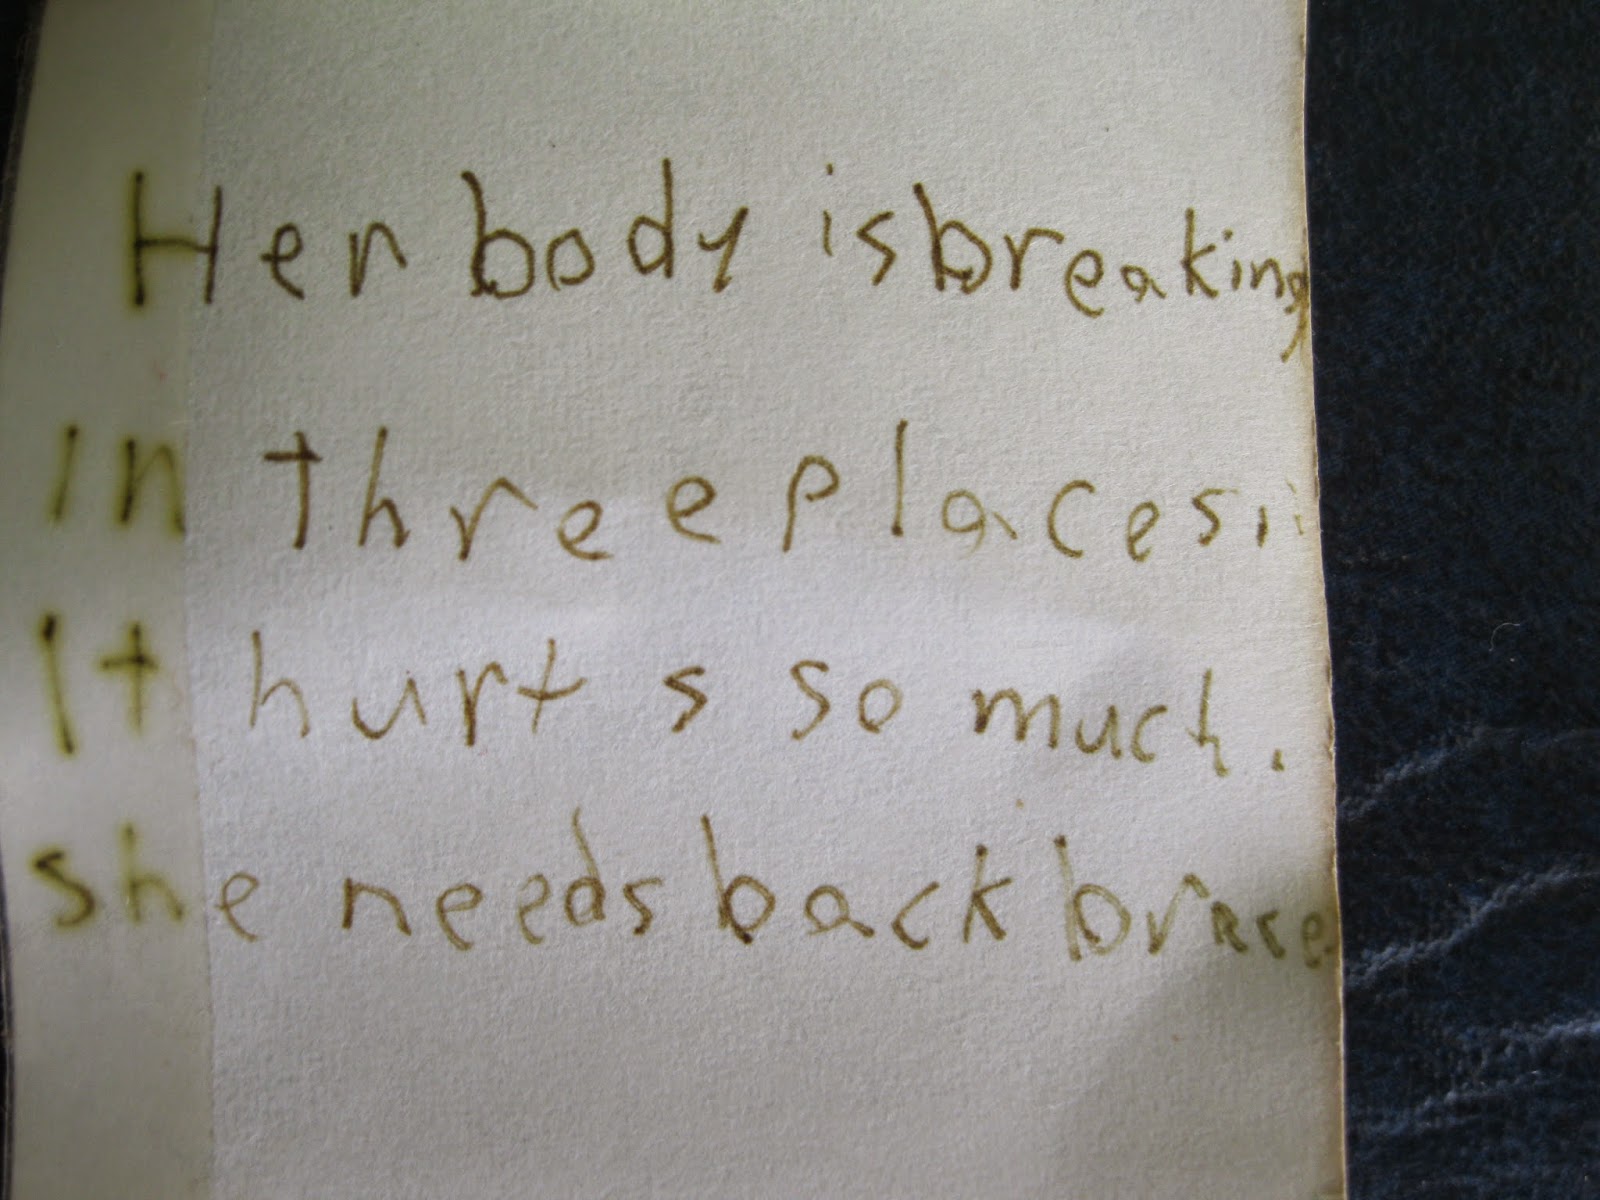 Her body is breaking
in three places..
It hurts so much.
she needs back brace